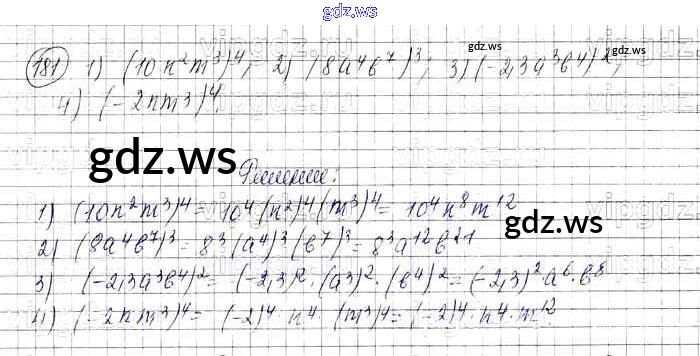 gdz.ws
gdz.ws
gdz.ws
181 1) (10n²m³)⁴; 2) (8a⁴b⁷)³; 3) (-2,3a³b⁴)²;
4) (-2nm³)⁴.
gdz.ws
gdz.ws
Решение:
1) (10n²m³)⁴ = 10⁴(n²)⁴(m³)⁴ = 10⁴n⁸m¹²
2) (8a⁴b⁷)³ = 8³(a⁴)³(b⁷)³ = 8³a¹²b²¹
3) (-2,3a³b⁴)² = (-2,3)²·(a³)²·(b⁴)² = (-2,3)²·a⁶·b⁸
4) (-2nm³)⁴ = (-2)⁴·n⁴·(m³)⁴ = (-2)⁴·n⁴·m¹²
gdz.ws